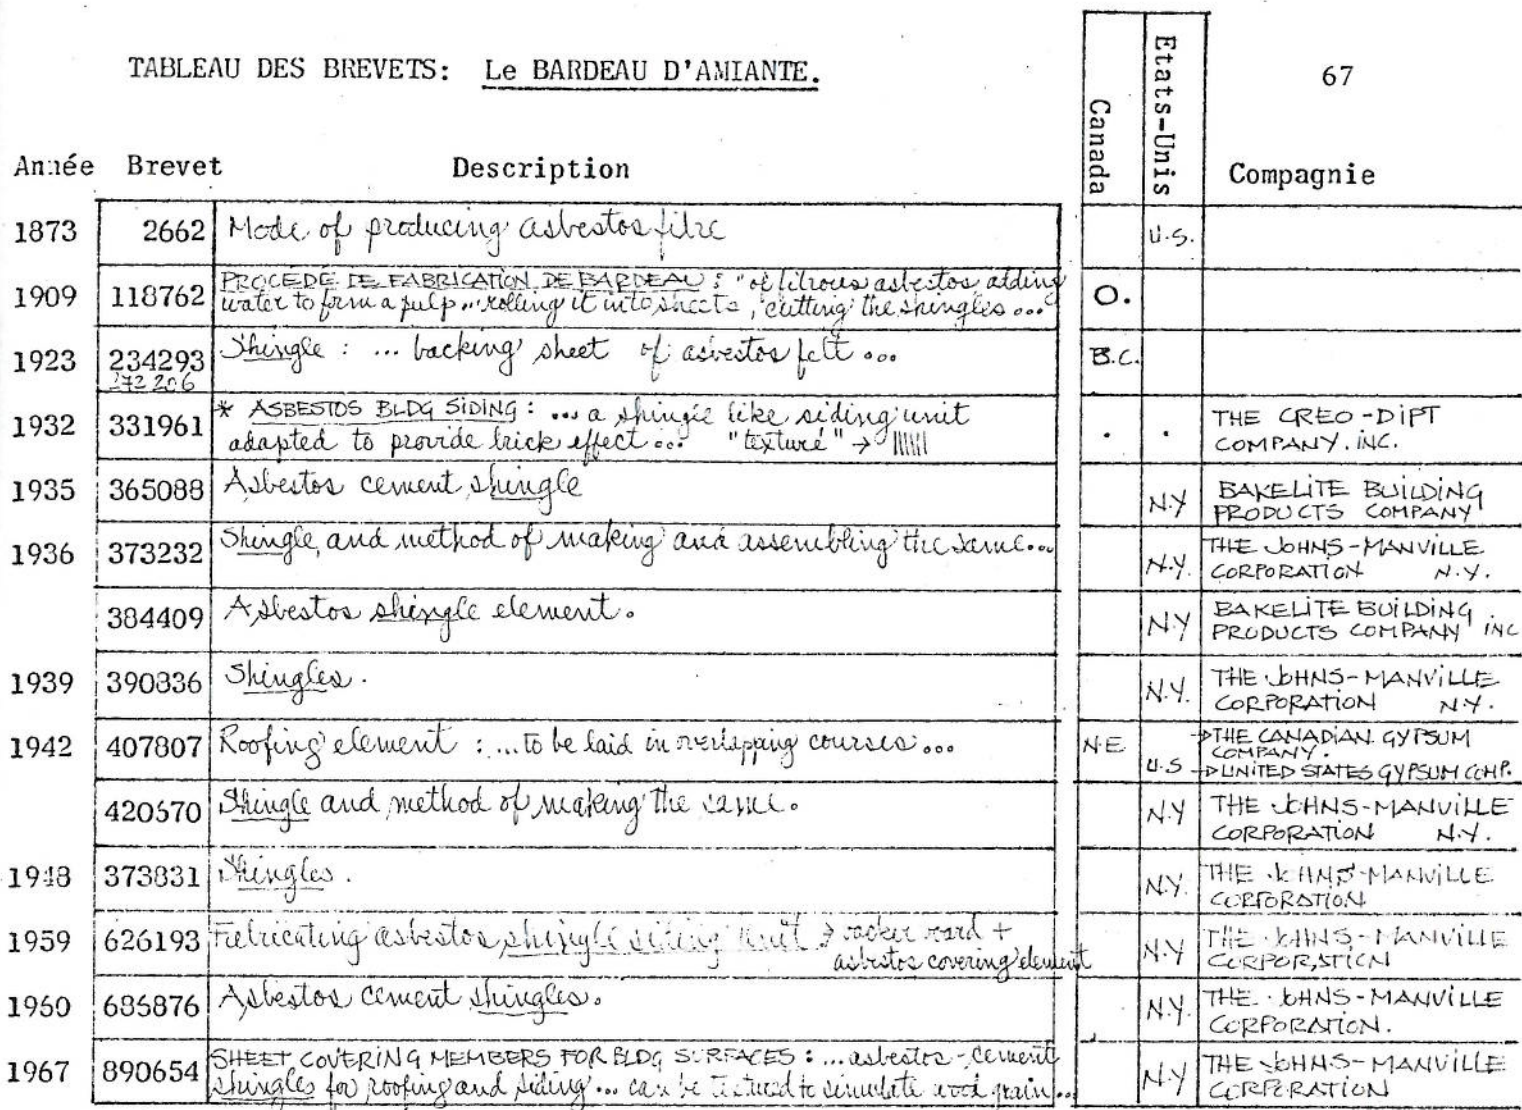 TABLEAU DES BREVETS: Le BARDEAU D'AMIANTE.
67
Année Brevet Description Canada Etats-Unis Compagnie
1873 2662 Mode of producing asbestos fibre U.S.
1909 118762 PROCÉDÉ DE FABRICATION DE BARDEAU : "of fibrous asbestos, adding O.
water to form a pulp... rolling it into sheets, cutting the shingles..."
1923 234293 Shingle : ... backing sheet of asbestos felt... B.C.
272206
1932 331961 * ASBESTOS BLDG SIDING : ... a shingle like siding unit . . THE CREO-DIPT
adapted to provide brick effect... "texture" → COMPANY. INC.
1935 365088 Asbestos cement shingle N.Y BAKELITE BUILDING
PRODUCTS COMPANY
1936 373232 Shingle and method of making and assembling the same... N.Y. THE JOHNS-MANVILLE
CORPORATION N.Y.
384409 Asbestos shingle element. N.Y BAKELITE BUILDING
PRODUCTS COMPANY INC
1939 390836 Shingles. N.Y. THE JOHNS-MANVILLE
CORPORATION N.Y.
1942 407807 Roofing element : ...to be laid in overlapping courses... N.E → THE CANADIAN GYPSUM
COMPANY.
U.S → UNITED STATES GYPSUM COMP.
420570 Shingle and method of making the same. N.Y THE JOHNS-MANVILLE
CORPORATION N.Y.
1948 373831 Shingles. N.Y. THE JOHNS-MANVILLE
CORPORATION
1959 626193 Fabricating asbestos shingle siding unit → backer board + N.Y THE JOHNS-MANVILLE
asbestos covering element CORPORATION
1960 685876 Asbestos cement shingles. N.Y. THE JOHNS-MANVILLE
CORPORATION.
1967 890654 SHEET COVERING MEMBERS FOR BLDG SURFACES : ... asbestos-cement N.Y THE JOHNS-MANVILLE
shingles for roofing and siding... can be textured to simulate wood grain... CORPORATION